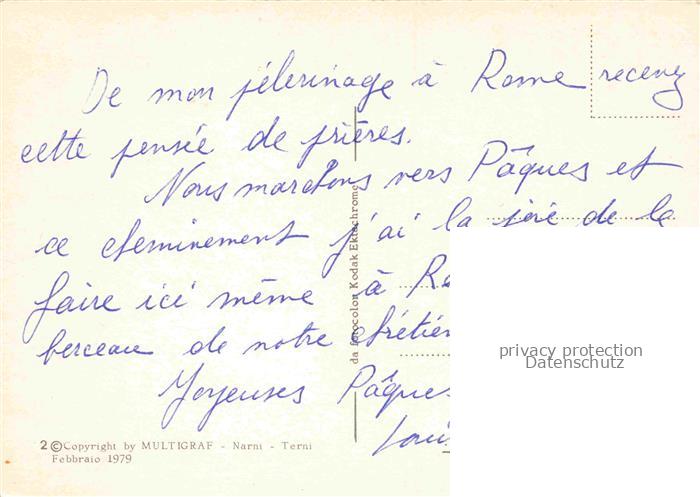 De mon pélerinage à Rome recevez
cette pensée de prières.
Nous marchons vers Pâques et
ce cheminement j'ai la joie de le
faire ici même à
berceau de notre
Joyeuses Pâques
da fotocolor Kodak Ektachrome
privacy protection
Datenschutz
2 ©Copyright by MULTIGRAF - Narni - Terni
Febbraio 1979